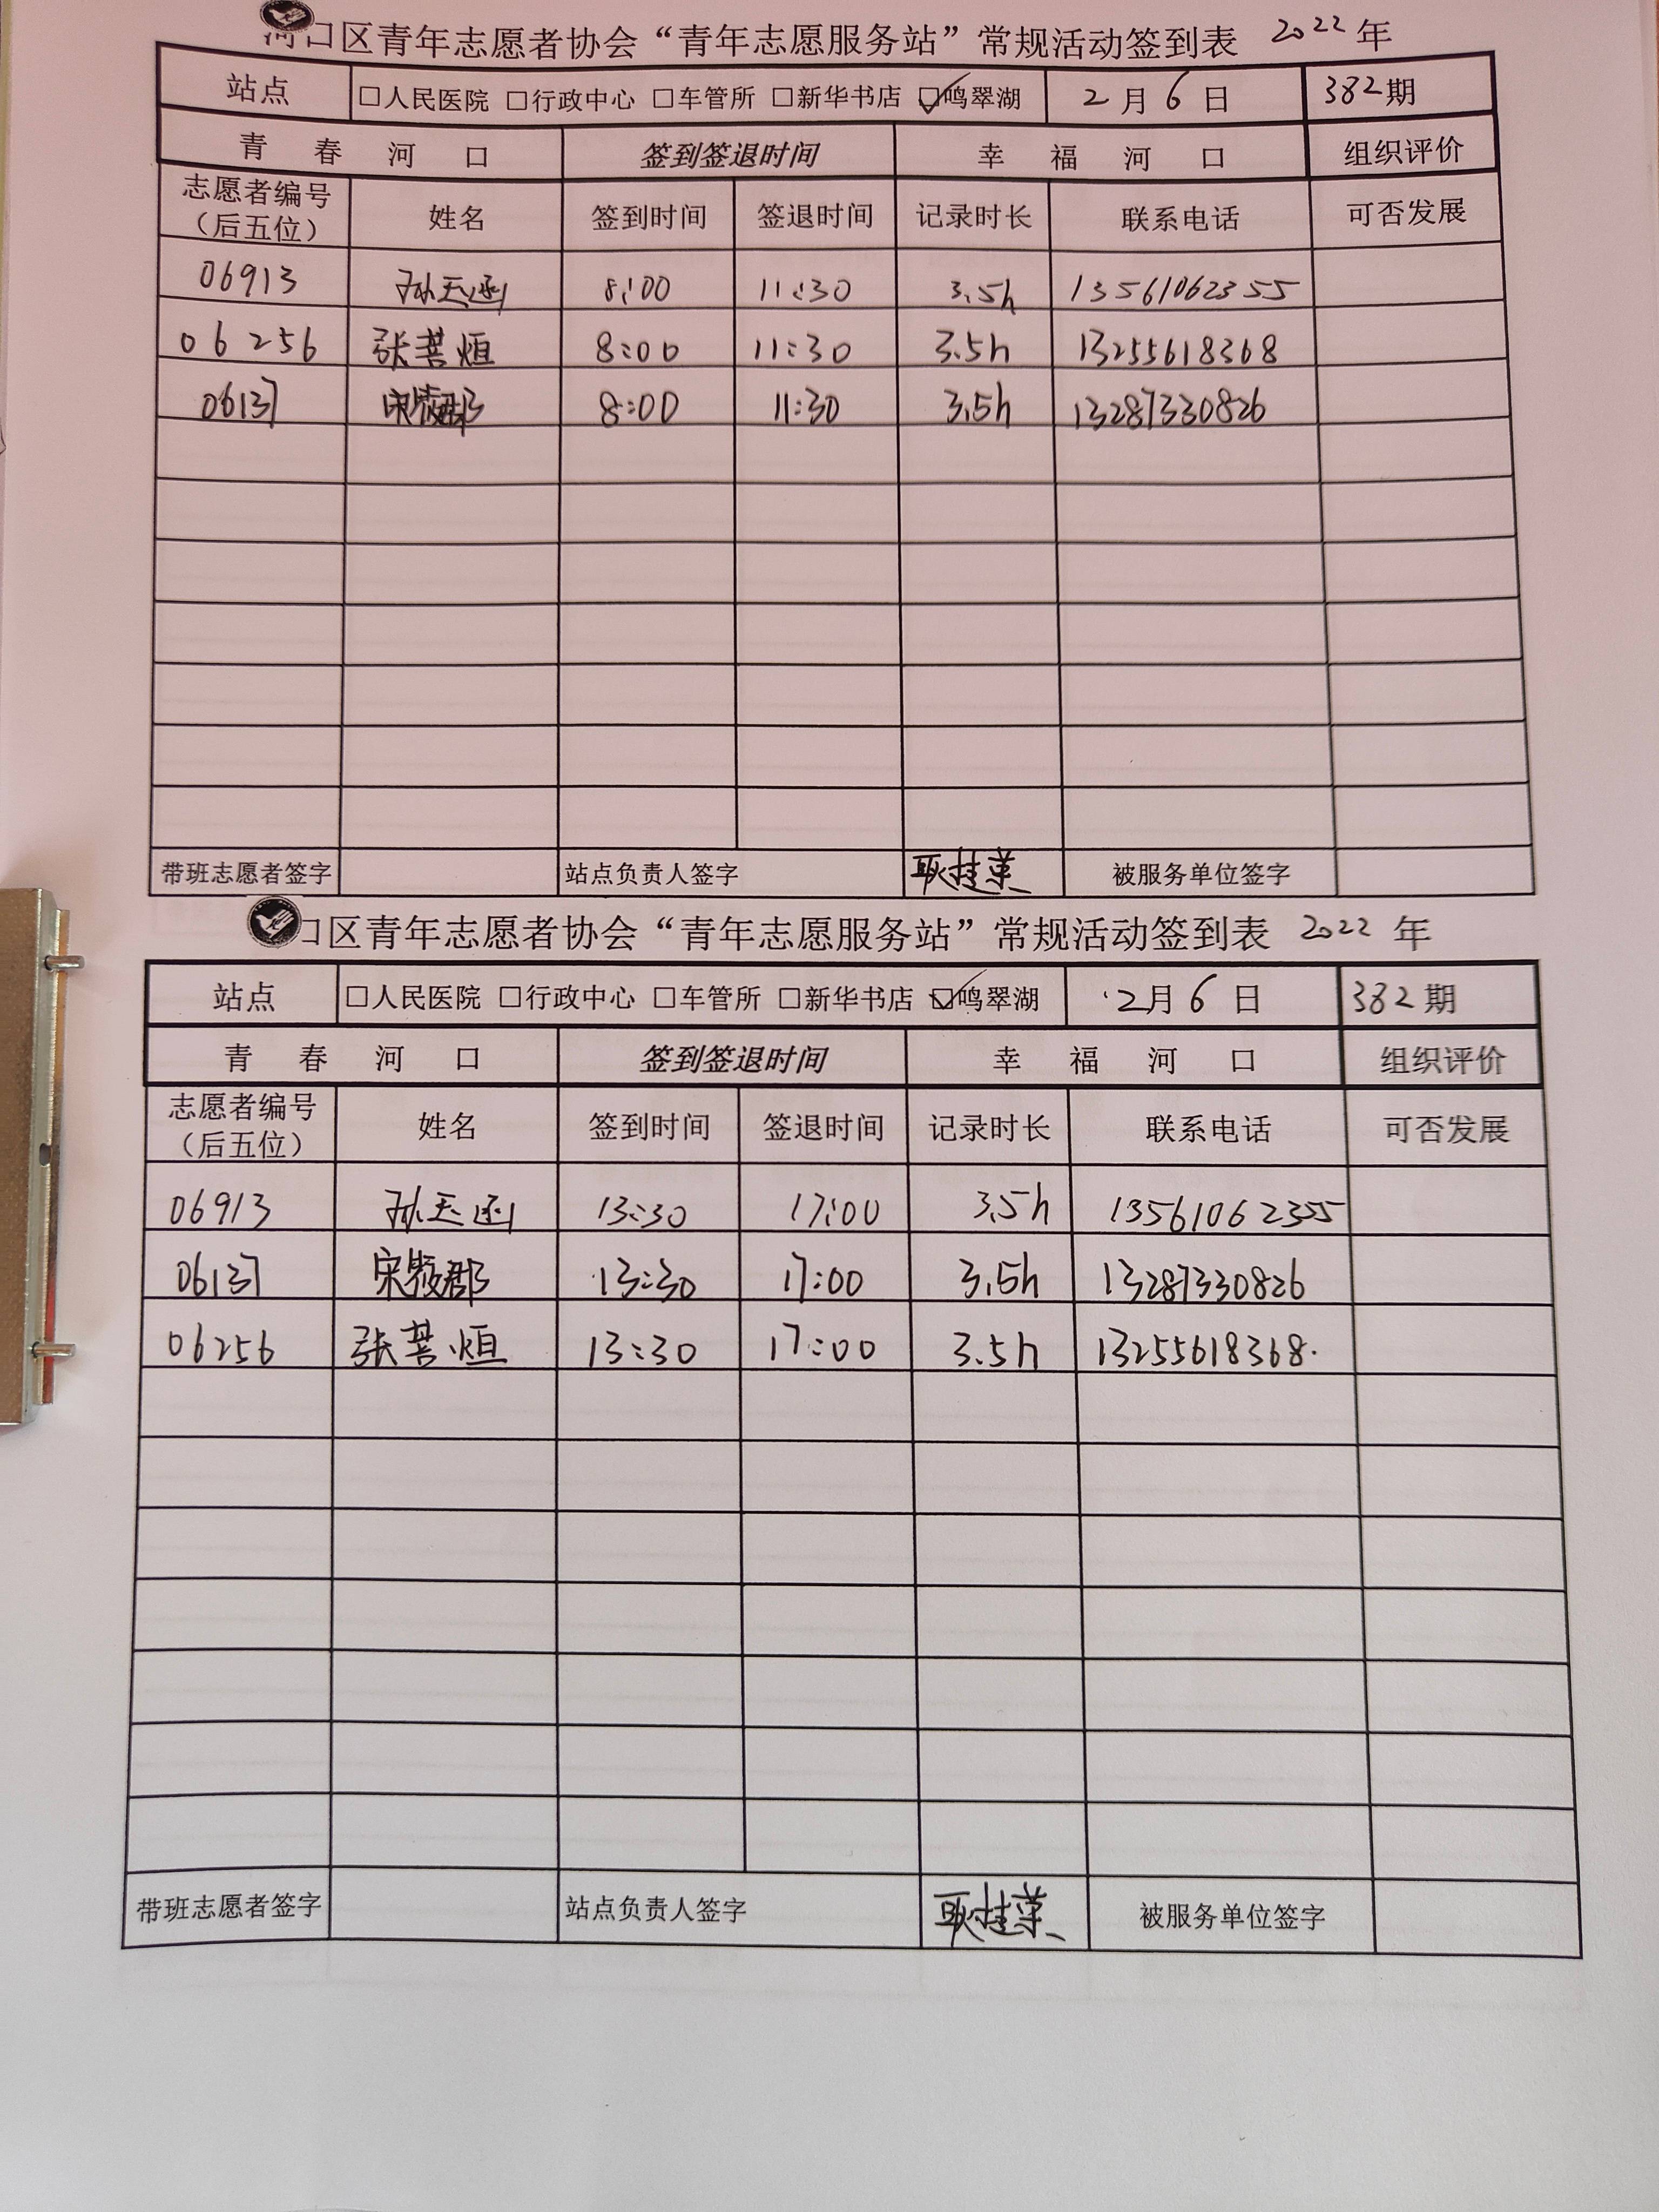 河口区青年志愿者协会“青年志愿服务站”常规活动签到表 2022 年
站点 □人民医院 □行政中心 □车管所 □新华书店 ☑鸣翠湖 2月6日 382期
青春河口 签到签退时间 幸福河口 组织评价
志愿者编号（后五位） 姓名 签到时间 签退时间 记录时长 联系电话 可否发展
06913 孙天函 8:00 11:30 3.5h 13561062355
06256 张菩烜 8:00 11:30 3.5h 13255618368
06137 宋筱郡 8:00 11:30 3.5h 13287330826
带班志愿者签字 站点负责人签字 耿桂荣 被服务单位签字
口区青年志愿者协会“青年志愿服务站”常规活动签到表 2022 年
站点 □人民医院 □行政中心 □车管所 □新华书店 ☑鸣翠湖 2月6日 382期
青春河口 签到签退时间 幸福河口 组织评价
志愿者编号（后五位） 姓名 签到时间 签退时间 记录时长 联系电话 可否发展
06913 孙天函 13:30 17:00 3.5h 13561062355
06137 宋筱郡 13:30 17:00 3.5h 13287330826
06256 张菩烜 13:30 17:00 3.5h 13255618368
带班志愿者签字 站点负责人签字 耿桂荣 被服务单位签字